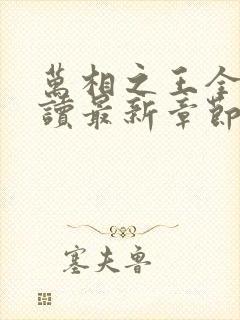 萬相之王全
讀最新章節
塞夫魯